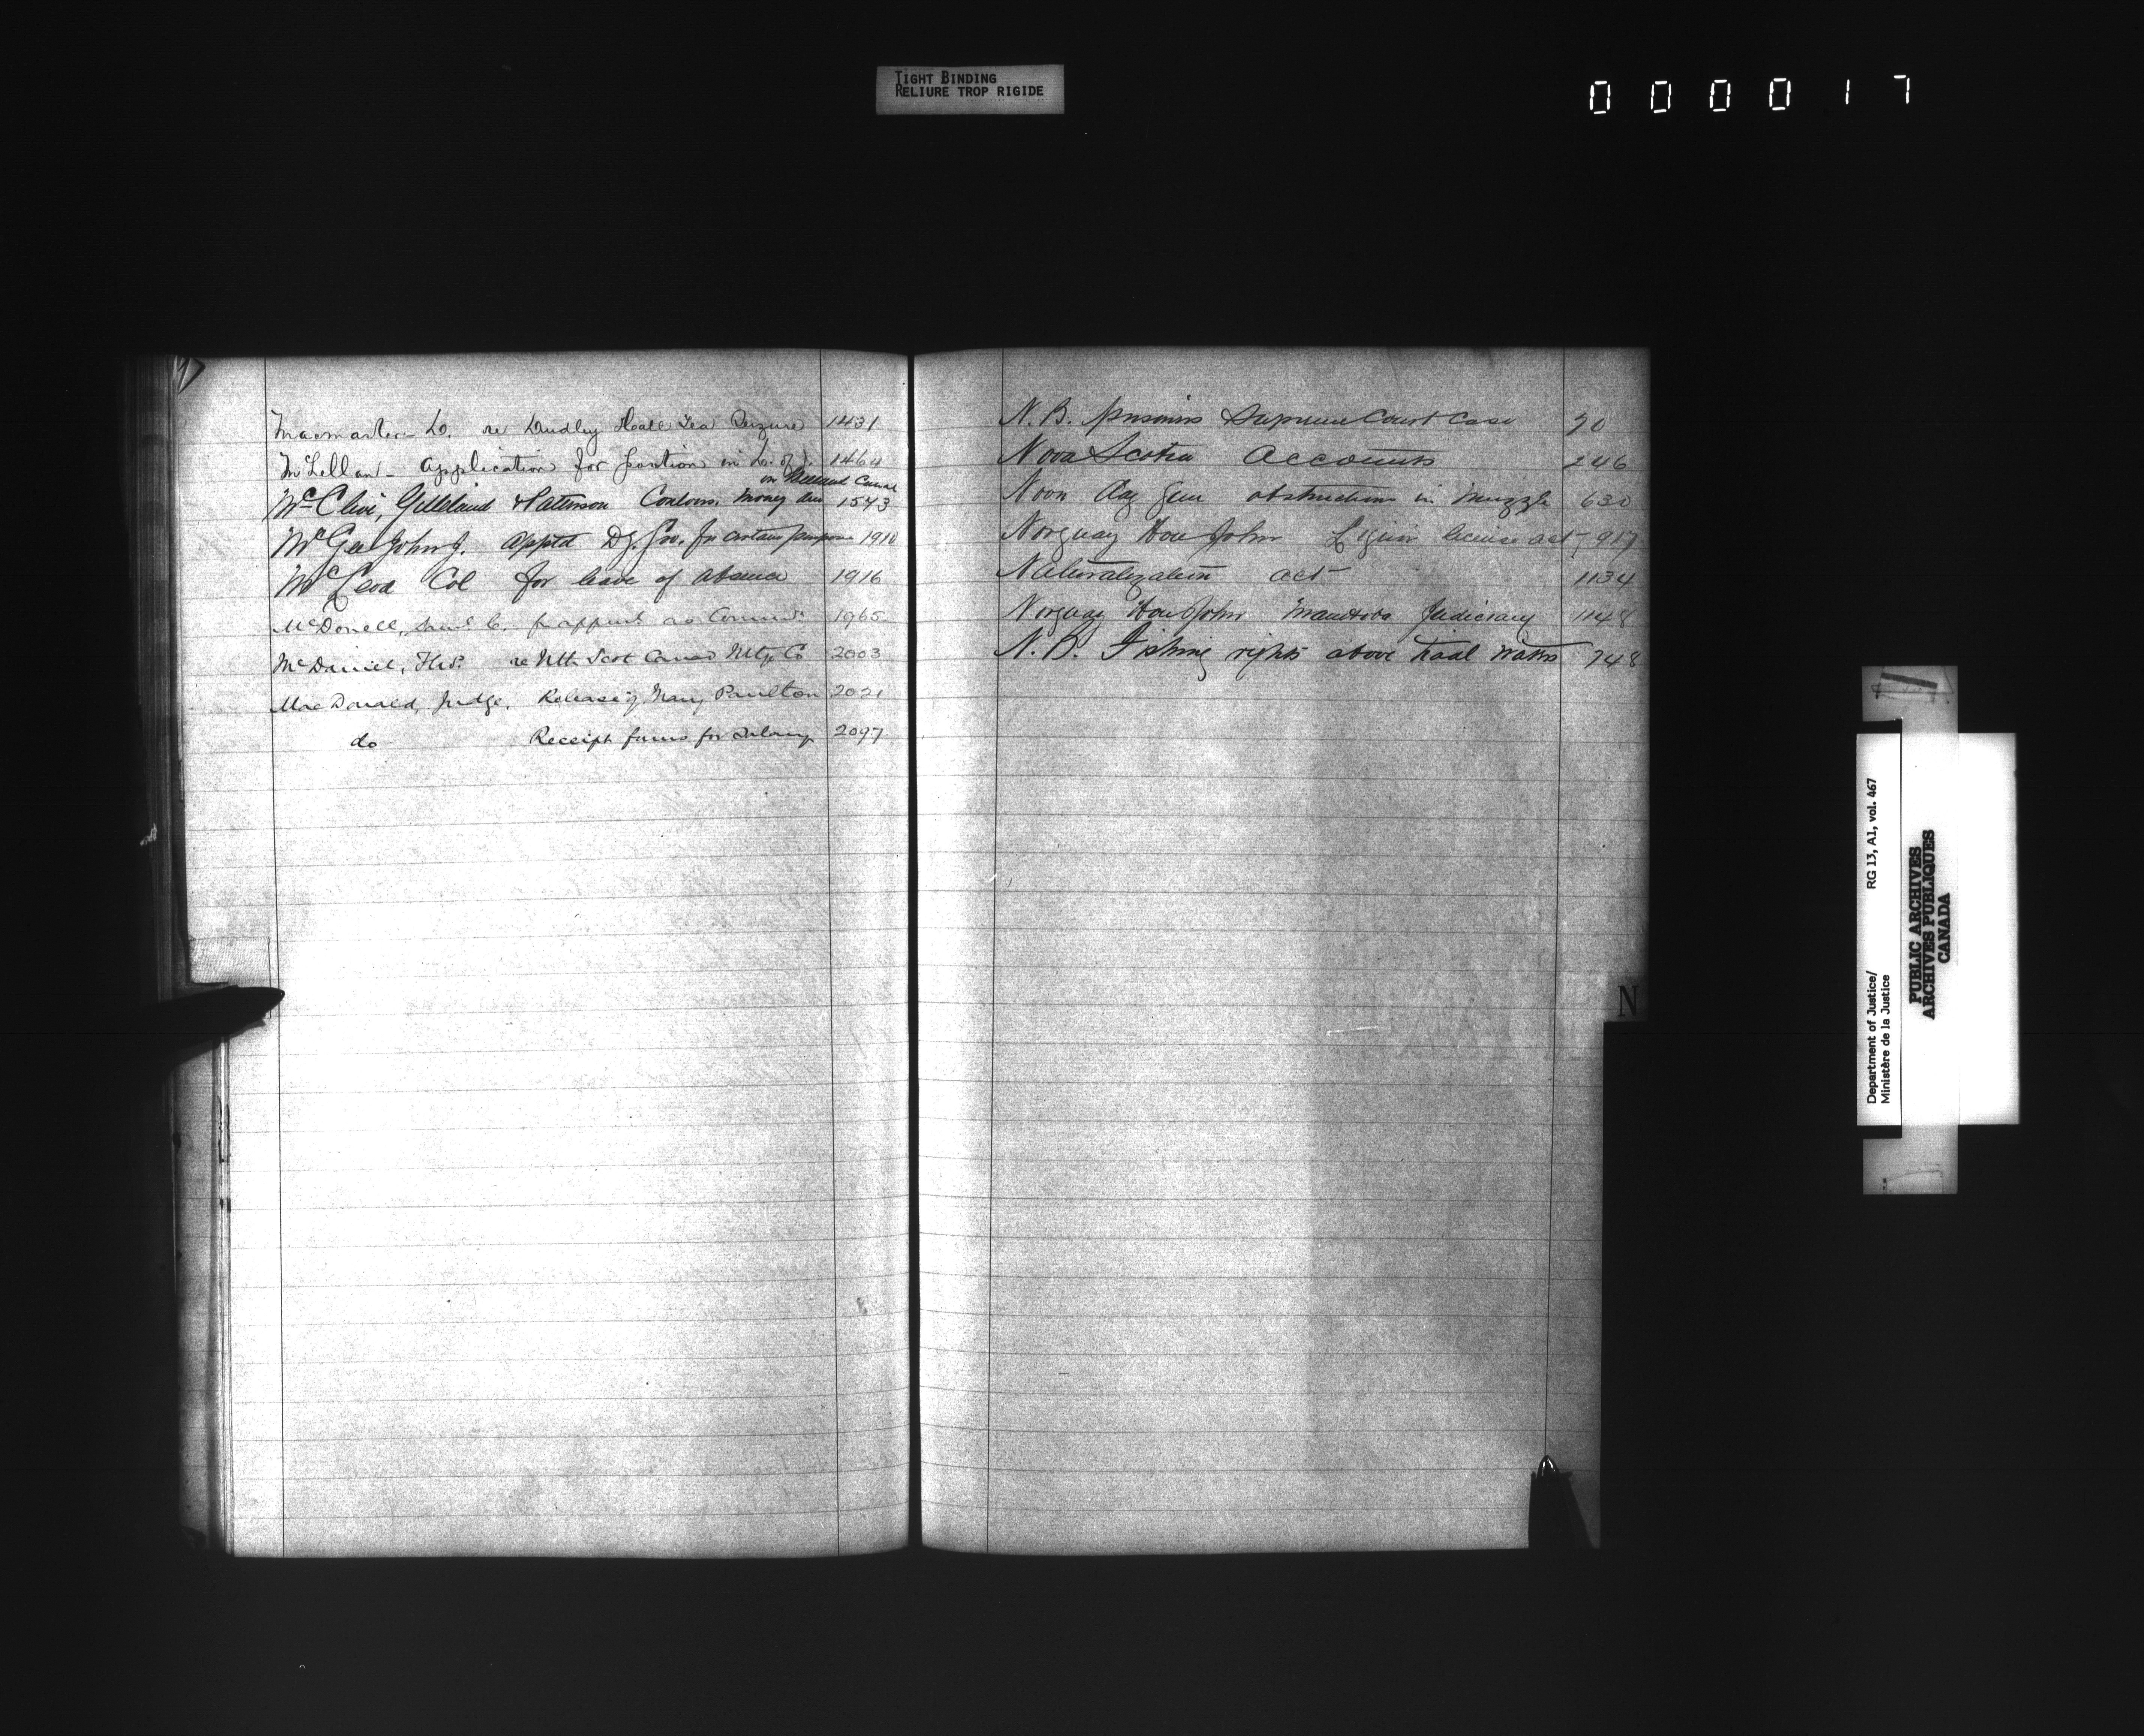 TIGHT BINDING
RELIURE TROP RIGIDE
000017
Macmaster D. re Dudley Tea Seizure 1431
McLellan - Application for position in 1464
on Welland Canal
McClive, Gilleland & Paterson Contors. money due 1543
McGee John J. Appted Dy. Gov. for certain purposes 1910
McLeod Col for leave of absence 1916
McDonell, Saml. C. for appmt as Commr. 1965
McDaniel, re Nth Scot Canad Mtge Co 2003
MacDonald, Judge. Release of Mary Paulton 2021
do Receipt forms for Salary 2097
N.B. prisoners Supreme Court Case 20
Nova Scotia Accounts 246
Noon day gun obstructions in muzzle 630
Norquay Hon John Liquor license act 917
Naturalization act 1134
Norquay Hon John Manitoba Judiciary 1148
N.B. Fishing rights above tidal waters 748
N
Department of Justice/
Ministère de la Justice
RG 13, A1, vol. 467
PUBLIC ARCHIVES
ARCHIVES PUBLIQUES
CANADA